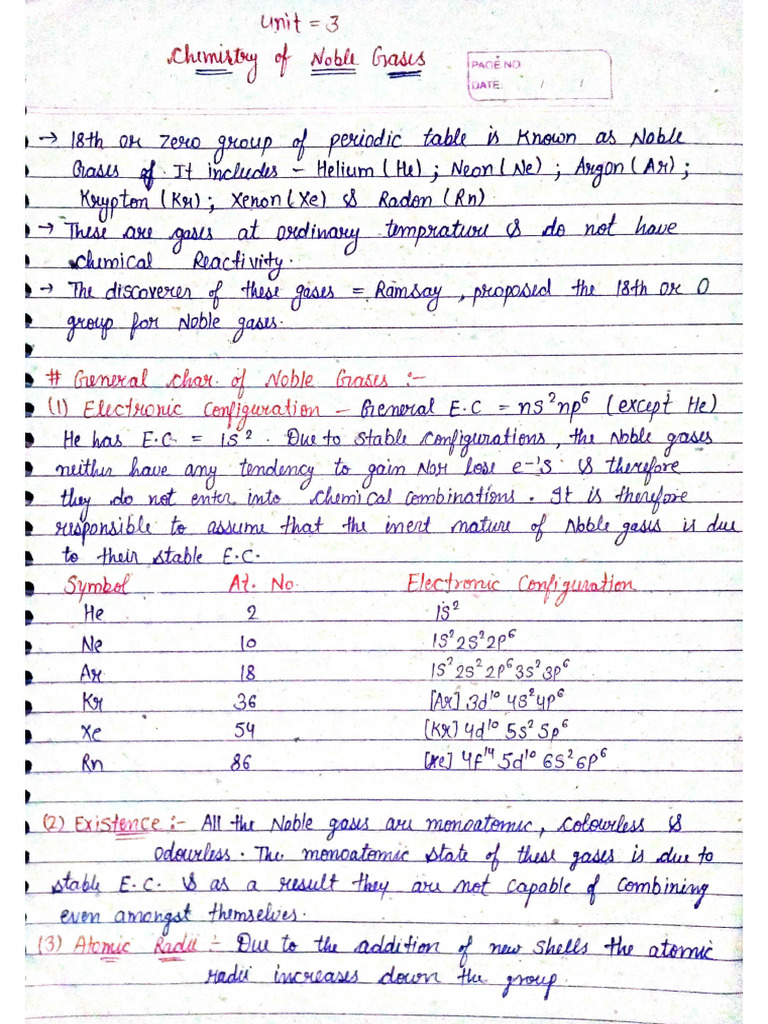 Unit = 3
Chemistry of Noble Gases
PAGE NO
DATE: / /
→ 18th or zero group of periodic table is known as Noble
Gases of It includes - Helium (He) ; Neon (Ne) ; Argon (Ar) ;
Krypton (Kr) ; Xenon (Xe) & Radon (Rn).
→ These are gases at ordinary temprature & do not have
chemical Reactivity.
→ The discoverer of these gases = Ramsay, proposed the 18th or 0
group for Noble gases.
# General char. of Noble Gases :-
(1) Electronic Configuration - General E.C = ns²np⁶ (except He)
He has E.C. = 1s². Due to stable configurations, the Noble gases
neither have any tendency to gain Nor lose e-'s & therefore
they do not enter into chemical combinations. It is therefore
responsible to assume that the inert nature of Noble gases is due
to their stable E.C.
Symbol At. No. Electronic Configuration
He 2 1s²
Ne 10 1s²2s²2p⁶
Ar 18 1s²2s²2p⁶3s²3p⁶
Kr 36 [Ar] 3d¹⁰ 4s²4p⁶
Xe 54 [Kr] 4d¹⁰ 5s² 5p⁶
Rn 86 [Xe] 4f¹⁴ 5d¹⁰ 6s² 6p⁶
(2) Existence :- All the Noble gases are monoatomic, colourless &
odourless. The monoatomic state of these gases is due to
stable E.C. & as a result they are not capable of combining
even amongst themselves.
(3) Atomic Radii :- Due to the addition of new shells the atomic
radii increases down the group.